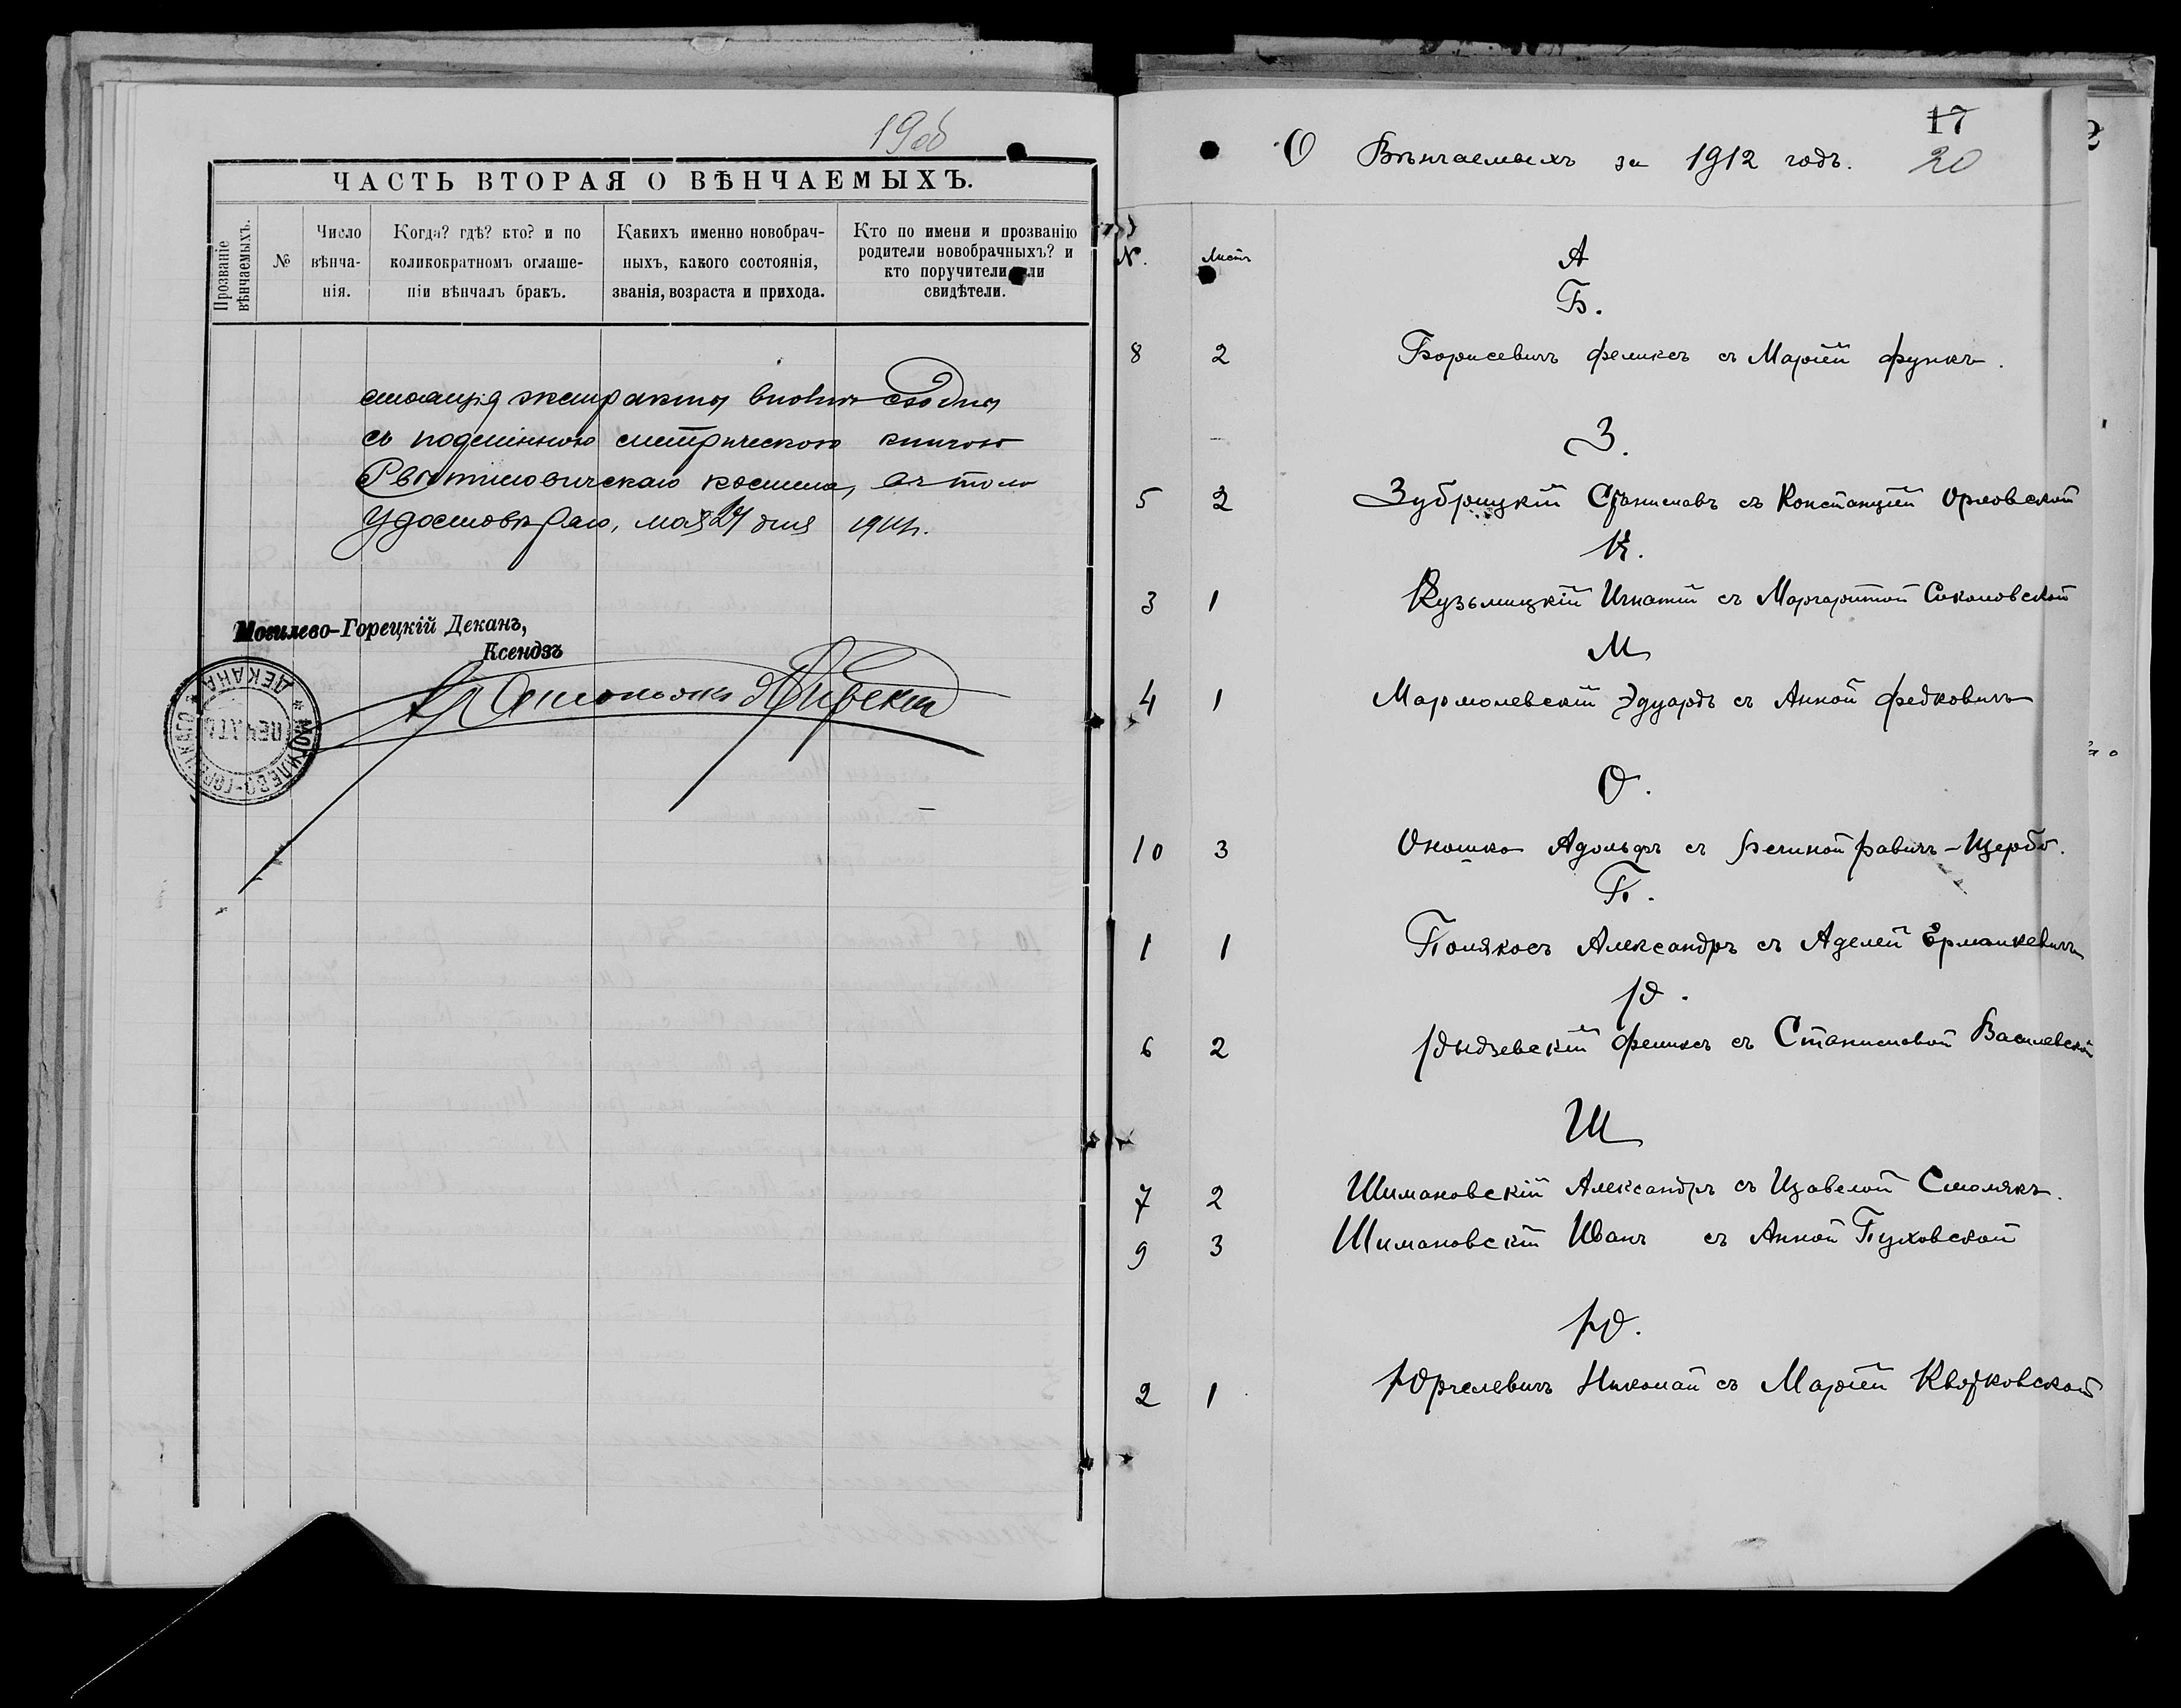 19 об
ЧАСТЬ ВТОРАЯ О ВѢНЧАЕМЫХЪ.
Прозваніе вѣнчаемыхъ.
№
Число
вѣнча-
нія.
Когда? гдѣ? кто? и по
коликократномъ оглаше-
ніи вѣнчалъ бракъ.
Какихъ именно новобрач-
ныхъ, какого состоянія,
званія, возраста и прихода.
Кто по имени и прозванію
родители новобрачныхъ? и
кто поручители или
свидѣтели.
экстракта вполнѣ сходна
съ подлинною метрическою книгою
костела, въ томъ
удостовѣряю, мая 27 дня
Могилево-Горецкій Деканъ,
Ксендзъ
МОГИЛЕВО-ГОРЕЦК ДЕКАНА
ПЕЧАТЬ
17
О Вѣнчаемыхъ за 1912 годъ. 20
№. Листъ
А
Б.
8 2 Борисевичъ Феликсъ съ Маріей Функъ.
З.
5 2 Зубрицкій Станиславъ съ Констанціей Орловской
К.
3 1 Кузьмицкій Игнатій съ Маргаритой Соколовской
М
4 1 Мармолевскій Эдуардъ съ Анной Федковичъ
О.
10 3 Оношко Адольфъ съ Равичъ-Щербо.
П.
1 1 Александръ съ Аделей
Р.
6 2 Рыдзевскій Феликсъ съ Станиславой Василевской
Ш
7 2 Шимановскій Александръ съ Изавелой Смолякъ.
9 3 Шимановскій Иванъ съ Анной Пуховской
Ю.
2 1 Николай съ Маріей